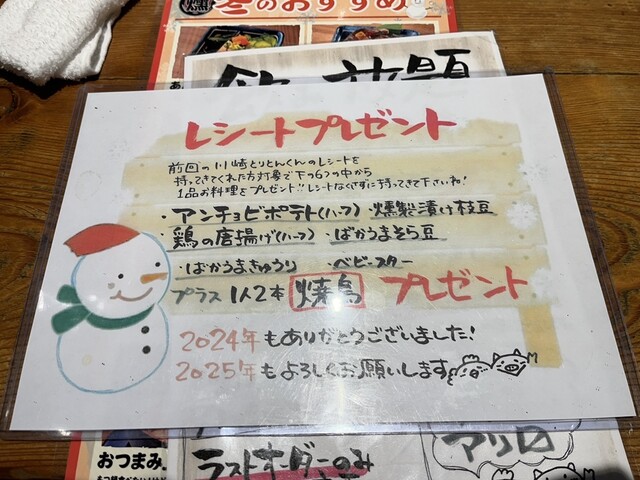 冬のおすすめ
飲み放題
レシートプレゼント
前回の川崎とりとんくんのレシートを
持ってきてくれた方対象で下の6つの中から
1品お料理をプレゼント!!レシートなくさずに持ってきて下さいね!
・アンチョビポテト(ハーフ)・燻製漬け枝豆
・鶏の唐揚げ(ハーフ)・ばかうまそら豆
・ばかうまきゅうり ・ベビースター
プラス 1人2本 焼鳥 プレゼント
2024年もありがとうございました!
2025年もよろしくお願いします
おつまみ
ラストオーダーのみ